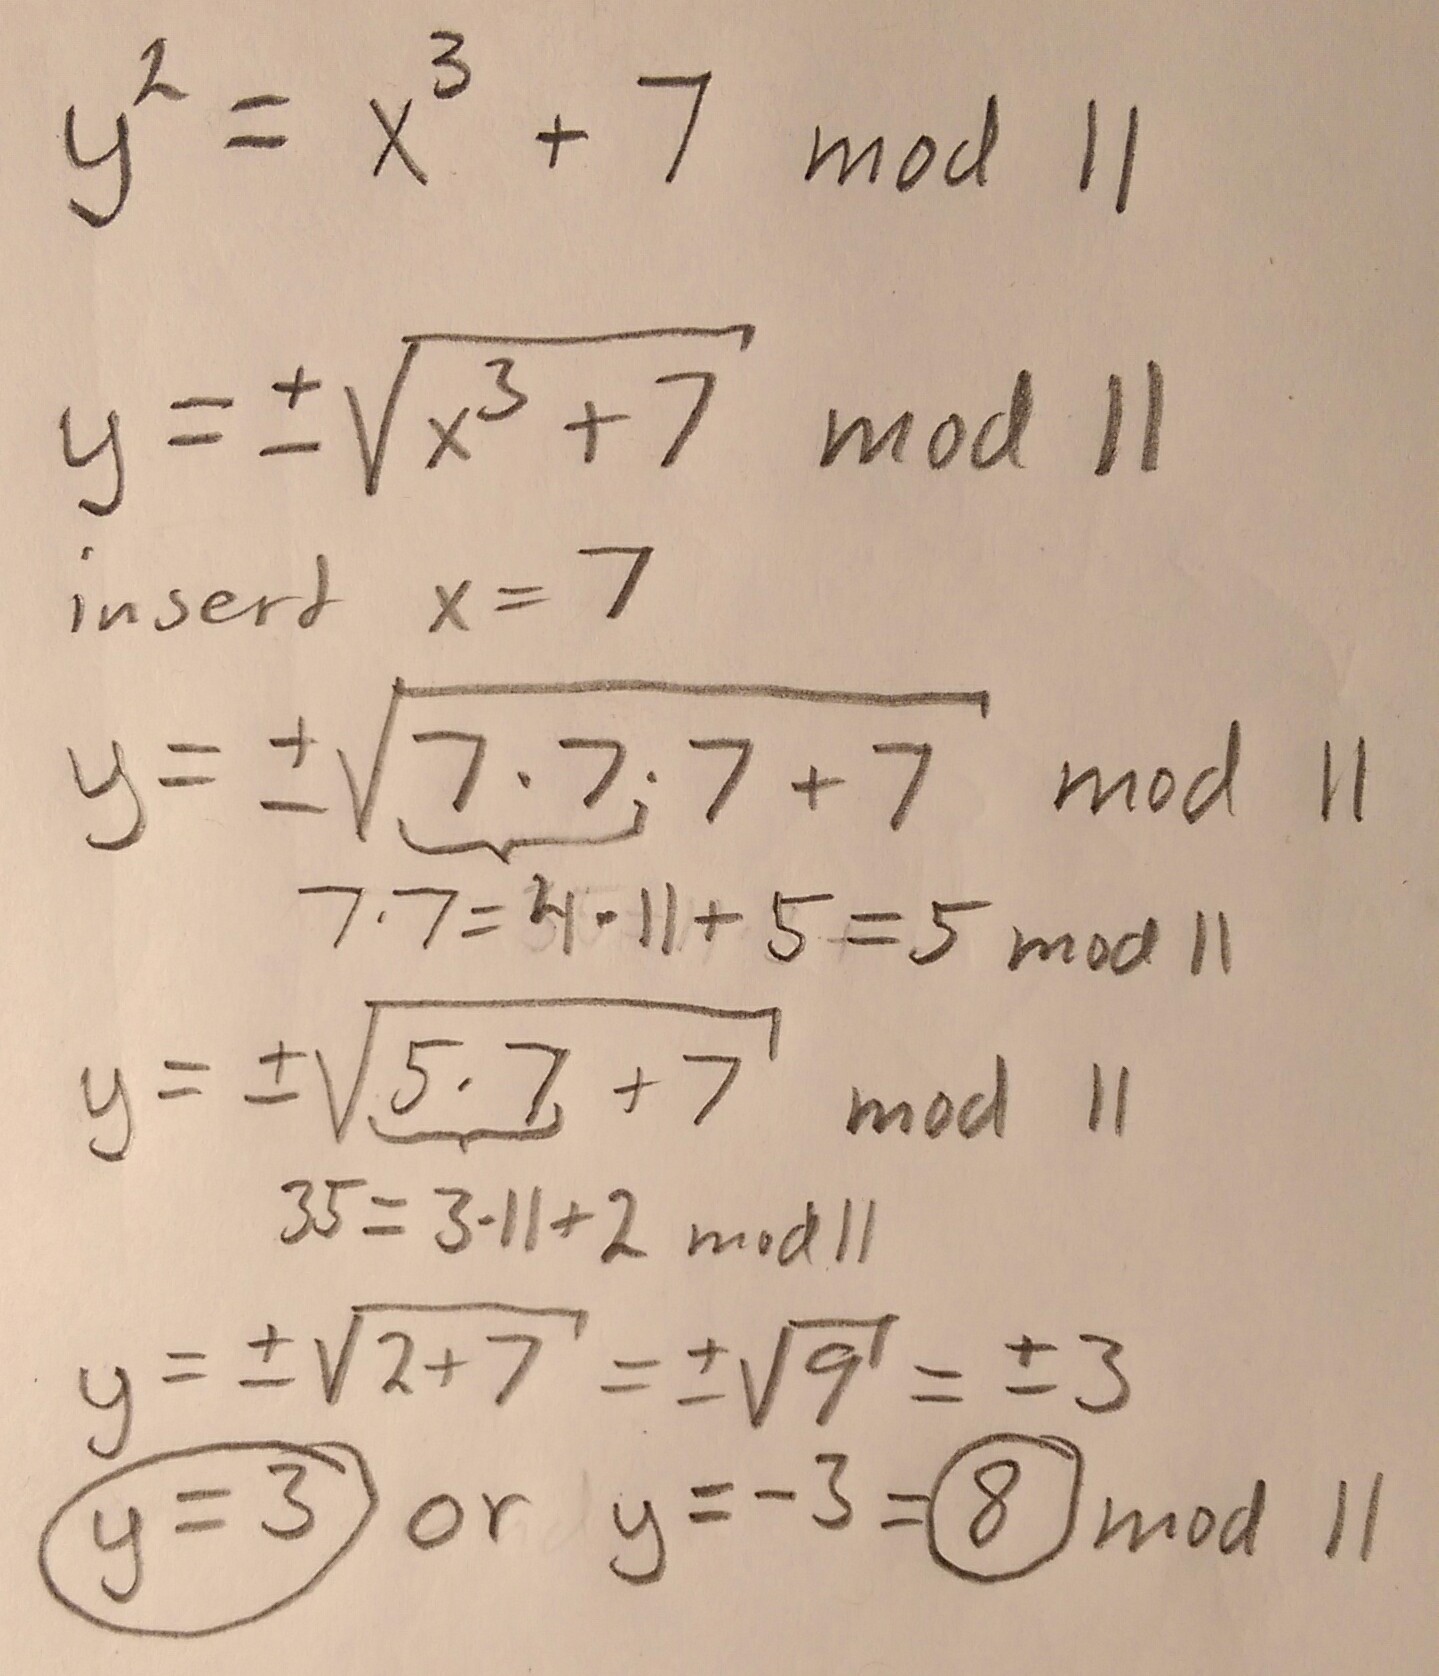 y² = x³ + 7 mod 11
y = ±√(x³ + 7) mod 11
insert x = 7
y = ±√(7·7·7 + 7) mod 11
7·7 = 4·11 + 5 = 5 mod 11
y = ±√(5·7 + 7) mod 11
35 = 3·11 + 2 mod 11
y = ±√(2+7) = ±√9 = ±3
y = 3 or y = -3 = 8 mod 11